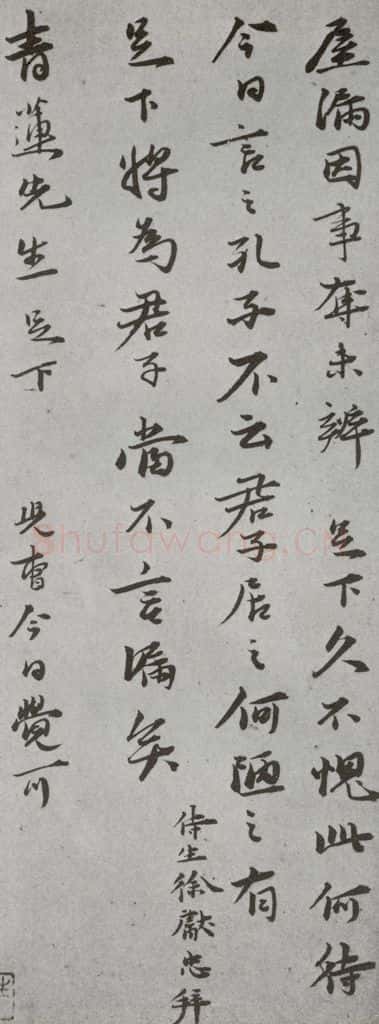 屋漏因事奪未辦 足下久不愧此何待
今日言之孔子不云君子居之何陋之有
足下將為君子當不言漏矣
侍生徐獻忠拜
青蓮先生足下
今日覺可
Shufawang.CN